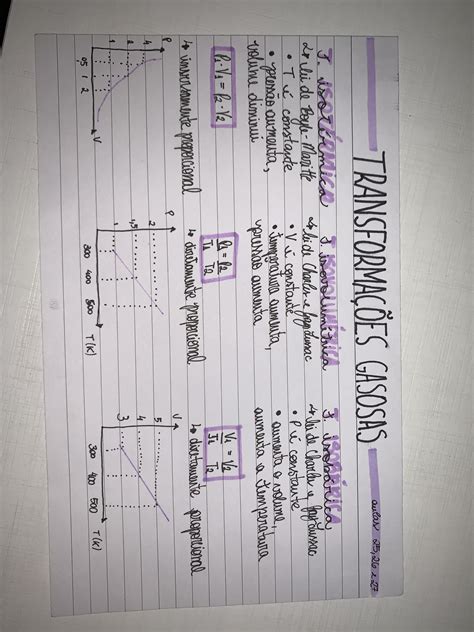 TRANSFORMAÇÕES GASOSAS
aulas 25, 26 e 27
T. ISOTÉRMICA
T. isotérmica
↳ lei de Boyle-Mariotte
• T é constante
• pressão aumenta,
volume diminui
P₁·V₁ = P₂·V₂
↳ inversamente proporcional
P
4
2
1
0,5 1 2
V
T. ISOVOLUMÉTRICA
T. isovolumétrica
↳ lei de Charles e Gay Lussac
• V é constante
• temperatura aumenta,
pressão aumenta
P₁ = P₂
T₁ T₂
↳ diretamente proporcional
P
2
1,5
1
300 400 500
T (K)
T. ISOBÁRICA
T. isobárica
↳ lei de Charles e Gay Lussac
• P é constante
• aumenta o volume,
aumenta a temperatura
V₁ = V₂
T₁ T₂
↳ diretamente proporcional
V
5
4
3
300 400 500
T (K)